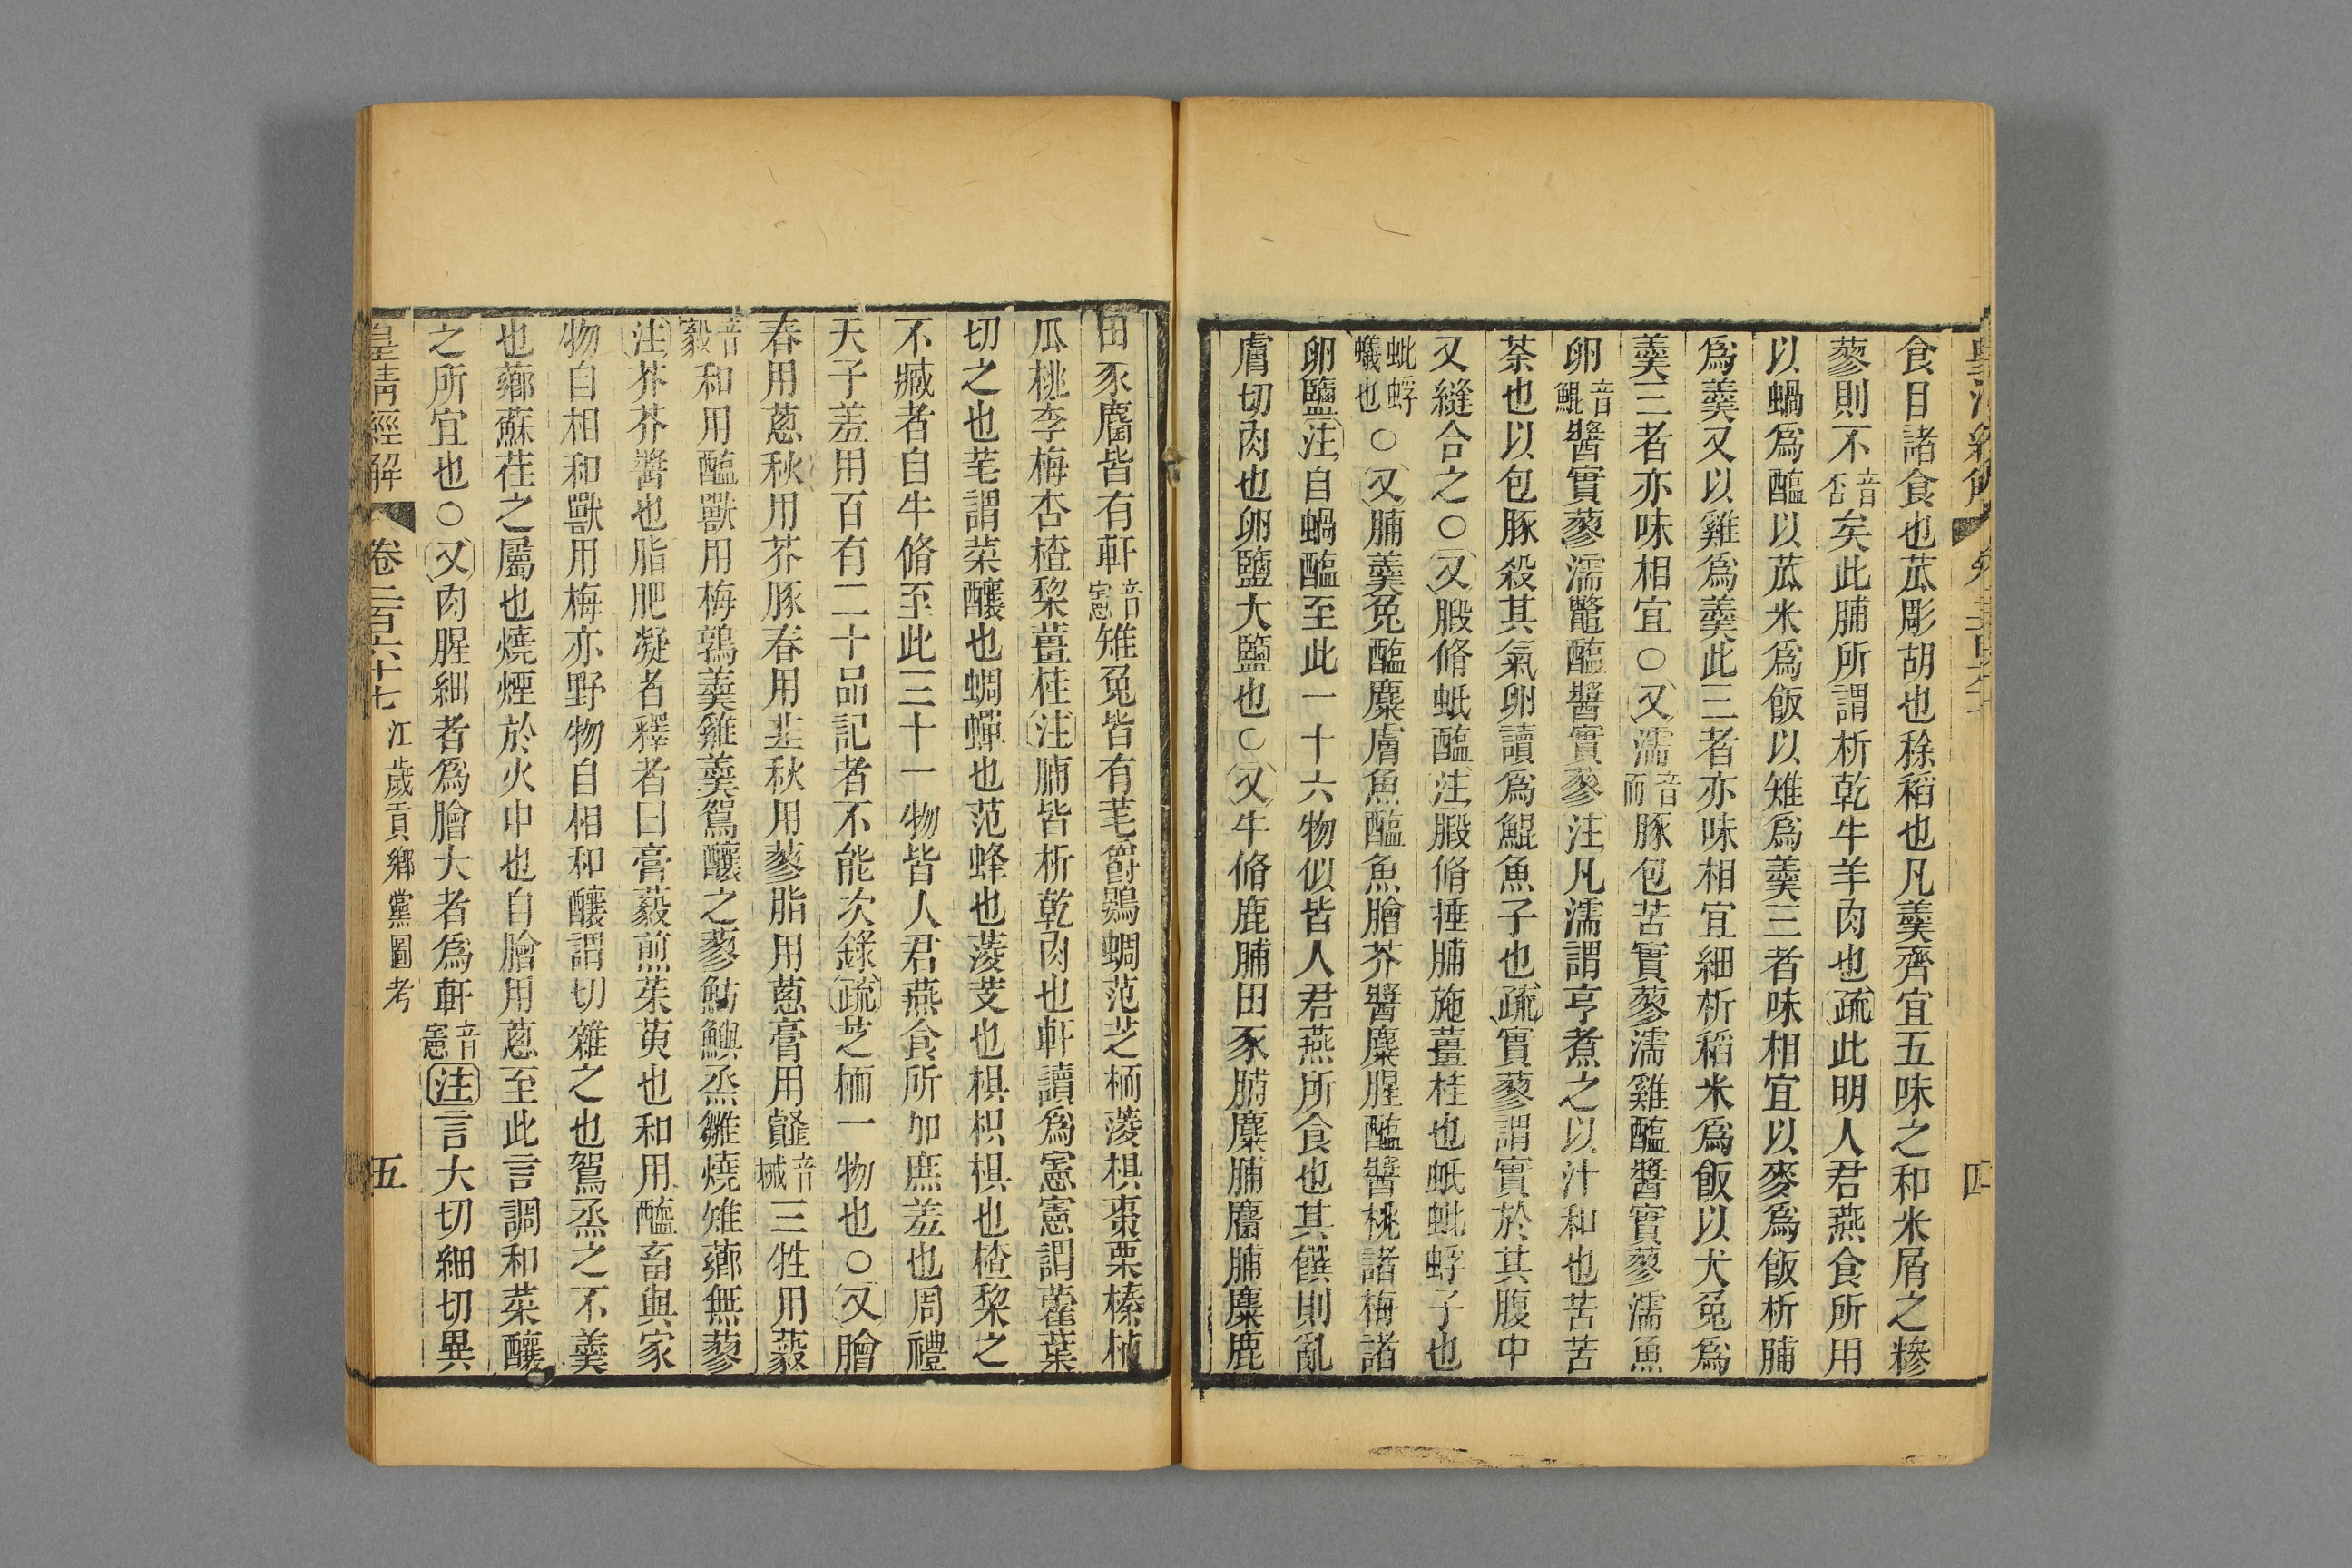 食目諸食也苽彫胡也稌稻也凡羹齊宜五味之和米屑之糝
蓼則不音否矣此脯所謂析乾牛羊肉也疏此明人君燕食所用
以蝸爲醢以苽米爲飯以雉爲羹三者味相宜以麥爲飯析脯
爲羹又以雞爲羹此三者亦味相宜細析稻米爲飯以犬兔爲
羹三者亦味相宜○又濡音而豚包苦實蓼濡雞醢醬實蓼濡魚
卵音鯤醬實蓼濡鼈醢醬實蓼注凡濡謂亨煮之以汁和也苦苦
荼也以包豚殺其氣卵讀爲鯤魚子也疏實蓼謂實於其腹中
又縫合之○又腶脩蚳醢注腶脩捶脯施薑桂也蚳蚍蜉子也
蚍蜉蟻也○又脯羹兔醢麋膚魚醢魚膾芥醬麋腥醢醬桃諸梅諸
卵鹽注自蝸醢至此一十六物似皆人君燕所食也其饌則亂
膚切肉也卵鹽大鹽也○又牛脩鹿脯田豕脯麋脯麕脯麋鹿
四
田豕麕皆有軒音憲雉兔皆有芼爵鷃蜩范芝栭菱椇棗栗榛柿
瓜桃李梅杏楂棃薑桂注脯皆析乾肉也軒讀爲憲憲謂藿葉
切之也芼謂菜釀也蜩蟬也范蜂也菱芰也椇枳椇也楂棃之
不臧者自牛脩至此三十一物皆人君燕食所加庶羞也周禮
天子羞用百有二十品記者不能次錄疏芝栭一物也○又膾
春用蔥秋用芥豚春用韭秋用蓼脂用蔥膏用䪥音械三牲用藙
音毅和用醯獸用梅鶉羹雞羹鴽釀之蓼魴鱮烝雛燒雉薌無蓼
注芥芥醬也脂肥凝者釋者曰膏藙煎茱萸也和用醯畜與家
物自相和獸用梅亦野物自相和釀謂切雜之也鴽烝之不羹
也薌蘇荏之屬也燒煙於火中也自膾用蔥至此言調和菜釀
之所宜也○又肉腥細者爲膾大者爲軒音憲注言大切細切異
皇清經解 卷二百六十七 江歲貢鄉黨圖考 五